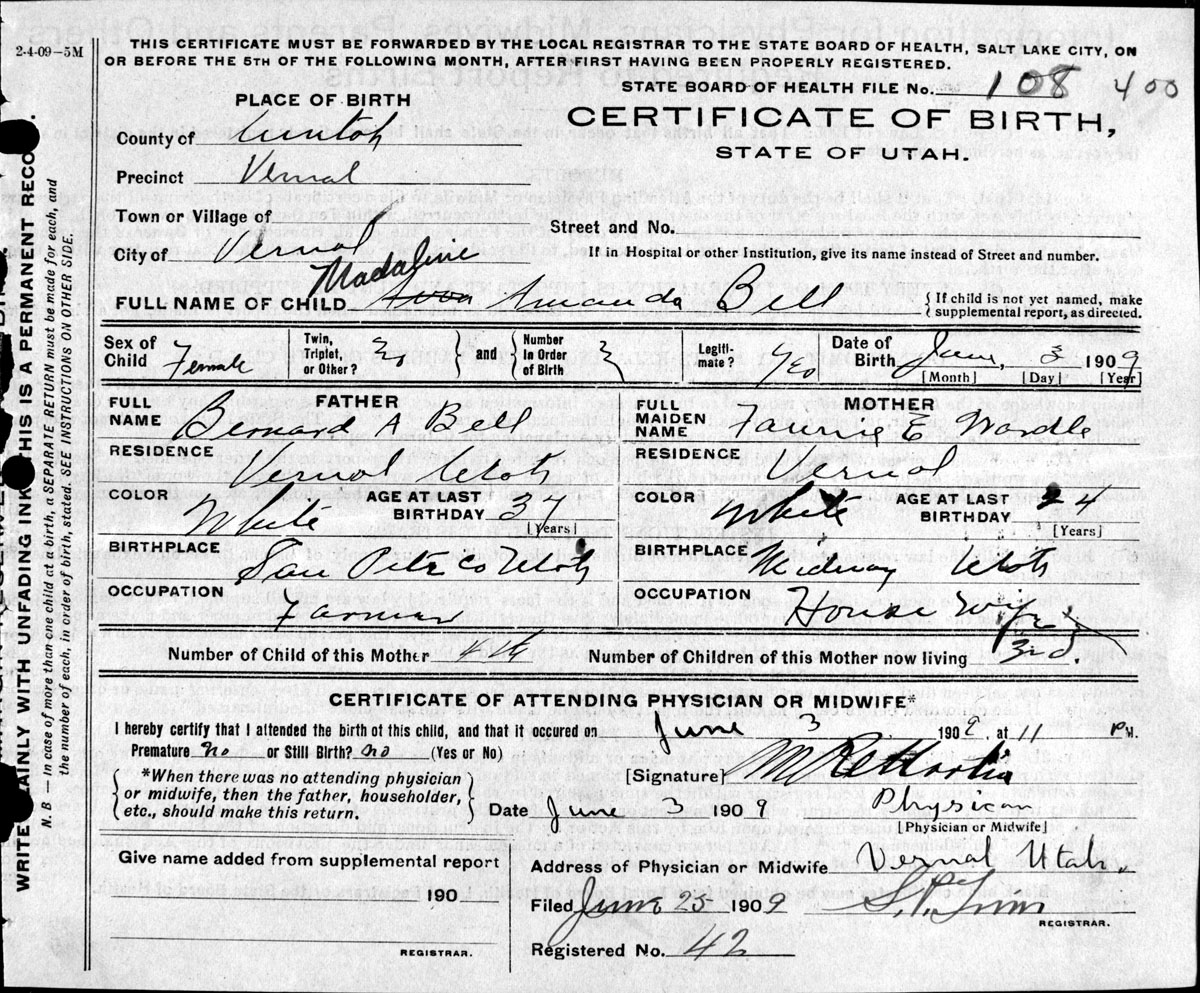 2-4-09-5M
THIS CERTIFICATE MUST BE FORWARDED BY THE LOCAL REGISTRAR TO THE STATE BOARD OF HEALTH, SALT LAKE CITY, ON
OR BEFORE THE 5TH OF THE FOLLOWING MONTH, AFTER FIRST HAVING BEEN PROPERLY REGISTERED.
STATE BOARD OF HEALTH FILE No. 108 400
PLACE OF BIRTH
CERTIFICATE OF BIRTH,
STATE OF UTAH.
County of Uintah
Precinct Vernal
Town or Village of
Street and No.
City of Vernal
If in Hospital or other Institution, give its name instead of Street and number.
Madaline
FULL NAME OF CHILD Amanda Bell
{ If child is not yet named, make
supplemental report, as directed.
Sex of Child Female
Twin, Triplet, or Other?
} and {
Number in Order of Birth
Legiti-mate? Yes
Date of Birth June, 3 1909
[Month] [Day] [Year]
FATHER
FULL NAME Bernard A Bell
RESIDENCE Vernal Utah
COLOR White
AGE AT LAST BIRTHDAY 37
[Years]
BIRTHPLACE San Pete Co Utah
OCCUPATION Farmer
MOTHER
FULL MAIDEN NAME Fannie E Wardle
RESIDENCE Vernal
COLOR White
AGE AT LAST BIRTHDAY 24
[Years]
BIRTHPLACE Midway Utah
OCCUPATION House Wife
Number of Child of this Mother 4th
Number of Children of this Mother now living 3rd.
CERTIFICATE OF ATTENDING PHYSICIAN OR MIDWIFE*
I hereby certify that I attended the birth of this child, and that it occured on June 3 1909, at 11 P M.
Premature no or Still Birth? no (Yes or No)
{ *When there was no attending physician
or midwife, then the father, householder,
etc., should make this return. }
[Signature]
Date June 3 1909
Physican
[Physician or Midwife]
Give name added from supplemental report
190
REGISTRAR.
Address of Physician or Midwife Vernal Utah
Filed June 25 1909
REGISTRAR.
Registered No. 42
WRITE PLAINLY WITH UNFADING INK THIS IS A PERMANENT RECORD.
N. B — In case of more than one child at a birth, a SEPARATE RETURN must be made for each, and
the number of each, in order of birth, stated. SEE INSTRUCTIONS ON OTHER SIDE.